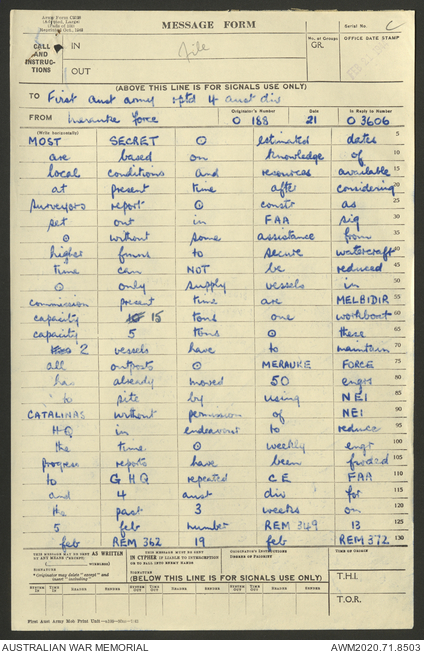 MESSAGE FORM
Serial No.
C
CALL AND INSTRUCTIONS
IN
File
No. of Groups
GR.
OFFICE DATE STAMP
OUT
(ABOVE THIS LINE IS FOR SIGNALS USE ONLY)
TO First aust army rptd 4 aust div
FROM merauke force
Originator's Number
O 183
Date
21
In Reply to Number
O 3606
(Write horizontally)
MOST SECRET ⊙ estimated dates 5
are based on knowledge of 10
local conditions and resources available 15
at present time after considering 20
surveyors report ⊙ constr as 25
set out in FAA sig 30
⊙ without some assistance from 35
higher fmns to secure watercraft 40
time can NOT be reduced 45
⊙ only supply vessels in 50
commission present time are MELBIDIR 55
capacity 15 tons one workboat 60
capacity 5 tons ⊙ these 65
2 vessels have to maintain 70
all outposts ⊙ MERAUKE FORCE 75
has already moved 50 engrs 80
to site by using NEI 85
CATALINAS without permission of NEI 90
HQ in endeavour to reduce 95
the time ⊙ weekly engr 100
progress reports have been fwded 105
to GHQ repeated CE FAA 110
and 4 aust div for 115
the past 3 weeks on 120
5 feb number REM 349 13 125
feb REM 362 19 feb REM 372 130
THIS MESSAGE MAY BE SENT AS WRITTEN
BY ANY MEANS (EXCEPT)
(WIRELESS)
SIGNATURE
THIS MESSAGE MUST BE SENT
IN CYPHER IF LIABLE TO INTERCEPTION
OR TO FALL INTO ENEMY HANDS
SIGNATURE
ORIGINATOR'S INSTRUCTIONS
DEGREE OF PRIORITY
TIME OF ORIGIN
(BELOW THIS LINE IS FOR SIGNALS USE ONLY)
T.H.I.
SYSTEM IN
TIME IN
SYSTEM OUT
TIME OUT
T.O.R.
First Aust Army Mob Print Unit
AUSTRALIAN WAR MEMORIAL
AWM2020.71.8503